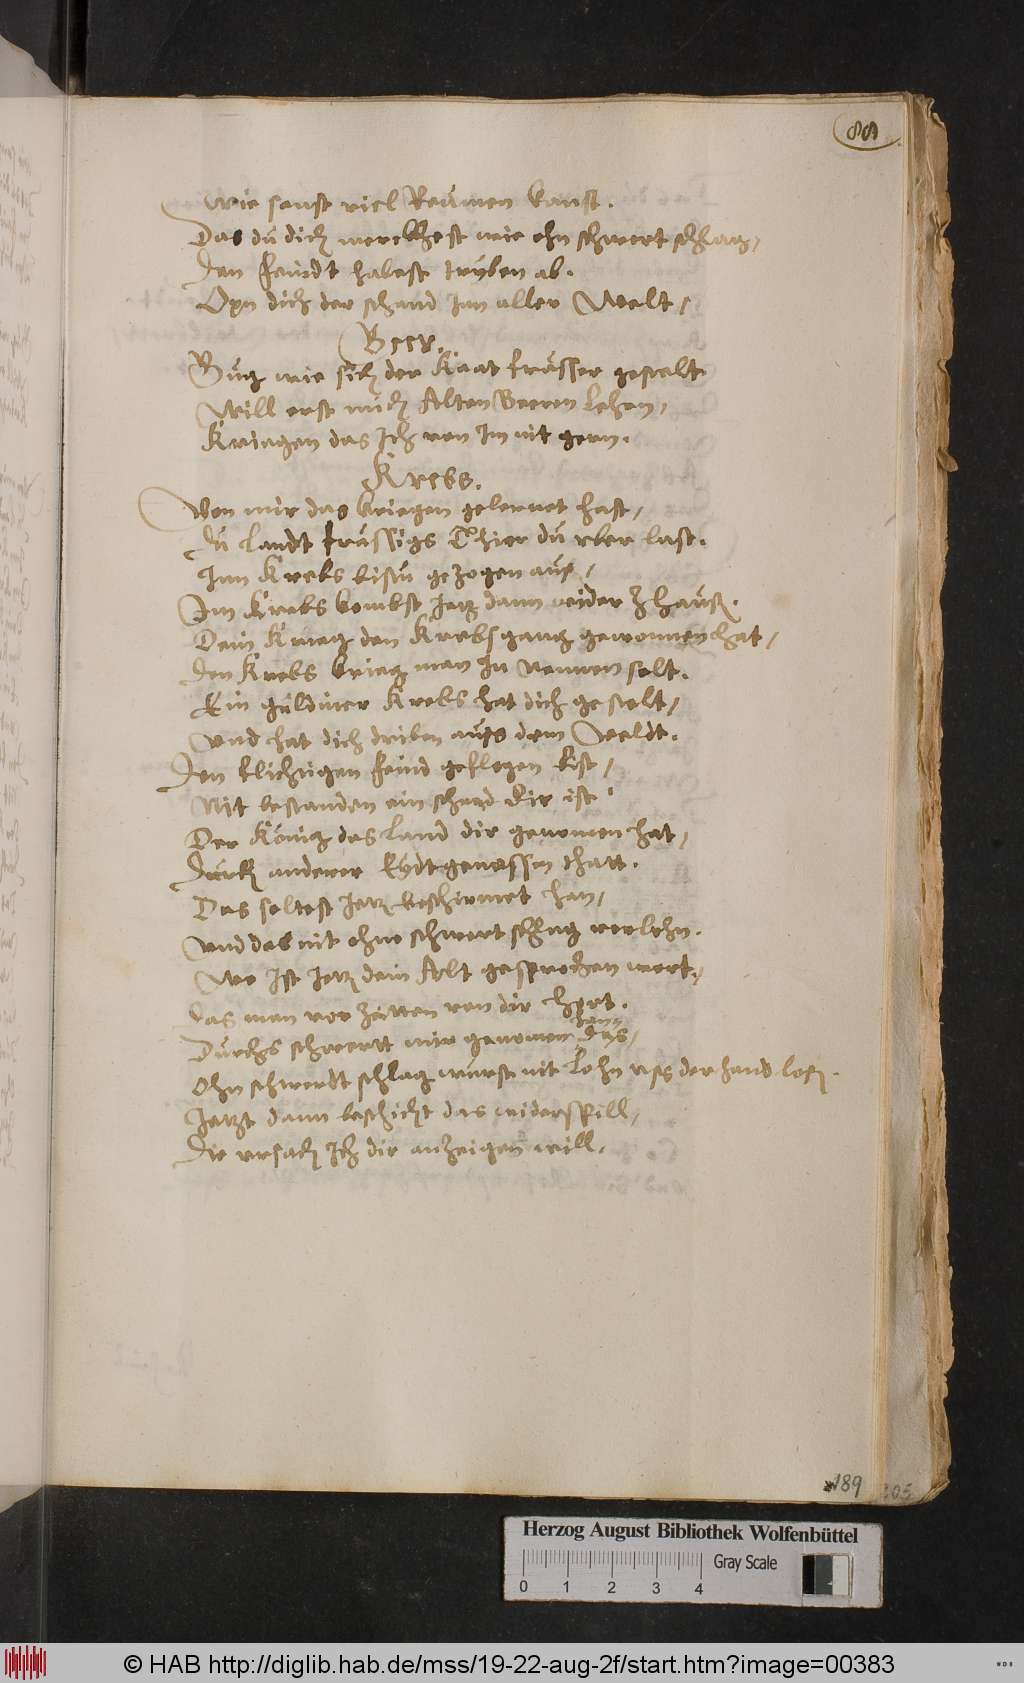 88
Wie sonst viel Reümen kanst.
Das du dich merckhest wie ohn schwert schlag,
Den feindt habest tryben ab.
Dyn dich der schand Inn aller Welt,
Beer.
Gug wie sich der Kaat frässer gestalt
Will erst mich Alten Beeren lehen,
Kriegen das Ich von Im nit gern.
Krebs.
Von mir das kriegen gelernet hast,
Du Landt frässigs Thier du vber last.
Inn Krebs bistu gezogen aus,
Im Krebs kombst Jetz dann wider z hauß.
Dein Krieg den Krebsgang gewonnen hat,
Den Krebs krieg man In nennen solt.
Ein guldiner Krebs hat dich gestelt,
Vnd hat dich driben auß dem Veldt.
Den flichtigen feind geflogen bist,
Nit bestanden ein schand dir ist
Der König das Land dir genomen hat,
Durch anderer Eydtgenossen thatt.
Das soltest Jetz beschirmet han,
Vnd das nit ohne schwert schlag verlehn.
Wo Ist Jetz dein Alt gesprochen wort,
Das man vor Zeitten von dir hört.
Durchs schwertt mir genomen das,
Ohn schwerdt schlag wurst nit Lehn vß der hand loß.
Jetzt dann beschicht das widerspill,
Die vrsach Ich dir anzeigen will.
189
205
Herzog August Bibliothek Wolfenbüttel
Gray Scale
0 1 2 3 4
© HAB http://diglib.hab.de/mss/19-22-aug-2f/start.htm?image=00383